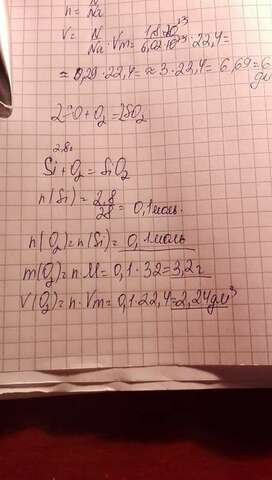 n = N/Na
V = N/Na · Vm = 1,8·10²³/6,02·10²³ · 22,4 =
≈ 0,29 · 22,4 = ≈ 3 · 22,4 = 6,69 = 6
O + O₂ = 2SO₂
2,8г
Si + O₂ = SiO₂
n(Si) = 2,8/28 = 0,1 моль.
n(O₂) = n(Si) = 0,1 моль
m(O₂) = n·M = 0,1 · 32 = 3,2 г
V(O₂) = n · Vm = 0,1 · 22,4 = 2,24 дм³